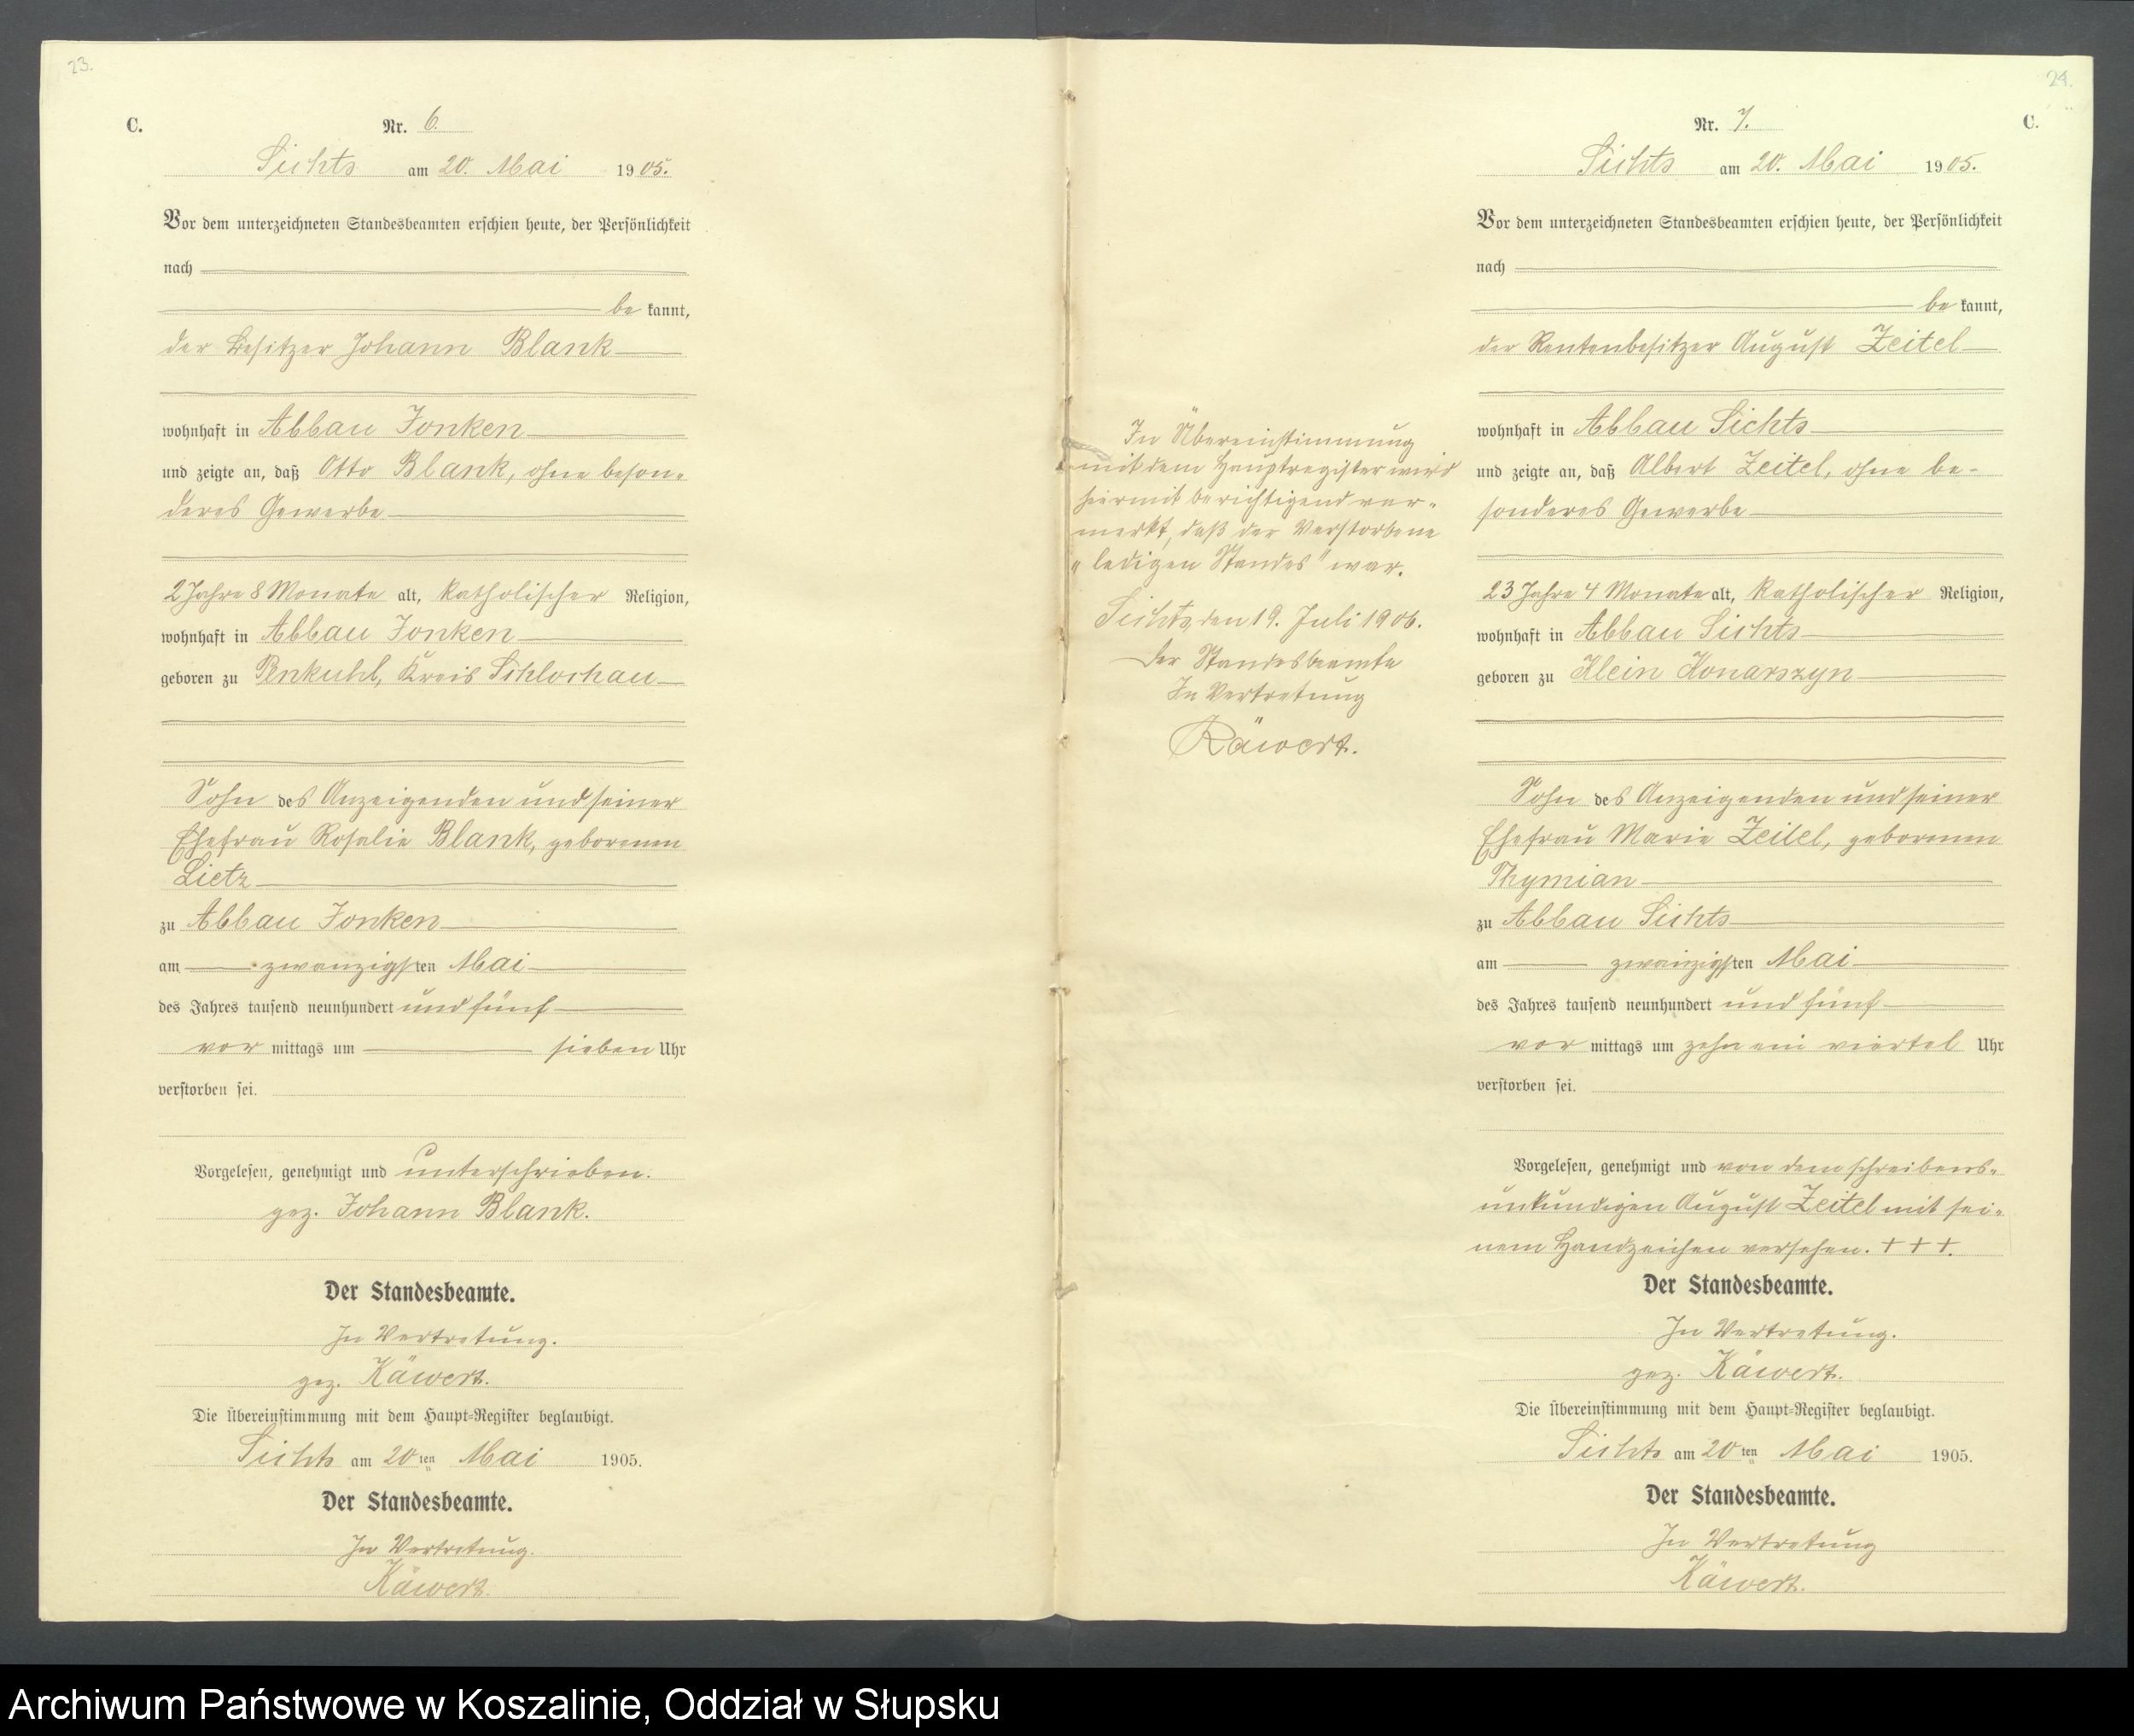 23.
C.
Nr. 6.
Sichts am 20. Mai 1905.
Vor dem unterzeichneten Standesbeamten erschien heute, der Persönlichkeit
nach
be kannt,
der Besitzer Johann Blank
wohnhaft in Abbau Jonken
und zeigte an, daß Otto Blank, ohne beson-
deres Gewerbe
2 Jahre 8 Monate alt, katholischer Religion,
wohnhaft in Abbau Jonken
geboren zu Penkuhl, Kreis Schlochau
Sohn des Anzeigenden und seiner
Ehefrau Rosalie Blank, geborenen
Lietz
zu Abbau Jonken
am zwanzigsten Mai
des Jahres tausend neunhundert und fünf
vor mittags um sieben Uhr
verstorben sei.
Vorgelesen, genehmigt und unterschrieben.
gez. Johann Blank.
Der Standesbeamte.
In Vertretung.
gez. Käwert.
Die Übereinstimmung mit dem Haupt-Register beglaubigt.
Sichts am 20ten Mai 1905.
Der Standesbeamte.
In Vertretung.
Käwert.
In Übereinstimmung
mit dem Hauptregister wird
hiermit berichtigend ver-
merkt, daß der Verstorbene
"ledigen Standes" war.
Sichts, den 19. Juli 1906.
Der Standesbeamte
In Vertretung
Käwert.
24.
Nr. 7.
C.
Sichts am 20. Mai 1905.
Vor dem unterzeichneten Standesbeamten erschien heute, der Persönlichkeit
nach
be kannt,
der Rentenbesitzer August Zeitel
wohnhaft in Abbau Sichts
und zeigte an, daß Albert Zeitel, ohne be-
sonderes Gewerbe
23 Jahre 4 Monate alt, katholischer Religion,
wohnhaft in Abbau Sichts
geboren zu Klein Konarszyn
Sohn des Anzeigenden und seiner
Ehefrau Marie Zeitel, geborenen
Thymian
zu Abbau Sichts
am zwanzigsten Mai
des Jahres tausend neunhundert und fünf
vor mittags um zehn ein viertel Uhr
verstorben sei.
Vorgelesen, genehmigt und von dem schreibens-
unkundigen August Zeitel mit sei-
nem Handzeichen versehen. + + +.
Der Standesbeamte.
In Vertretung.
gez. Käwert.
Die Übereinstimmung mit dem Haupt-Register beglaubigt.
Sichts am 20ten Mai 1905.
Der Standesbeamte.
In Vertretung
Käwert.
Archiwum Państwowe w Koszalinie, Oddział w Słupsku